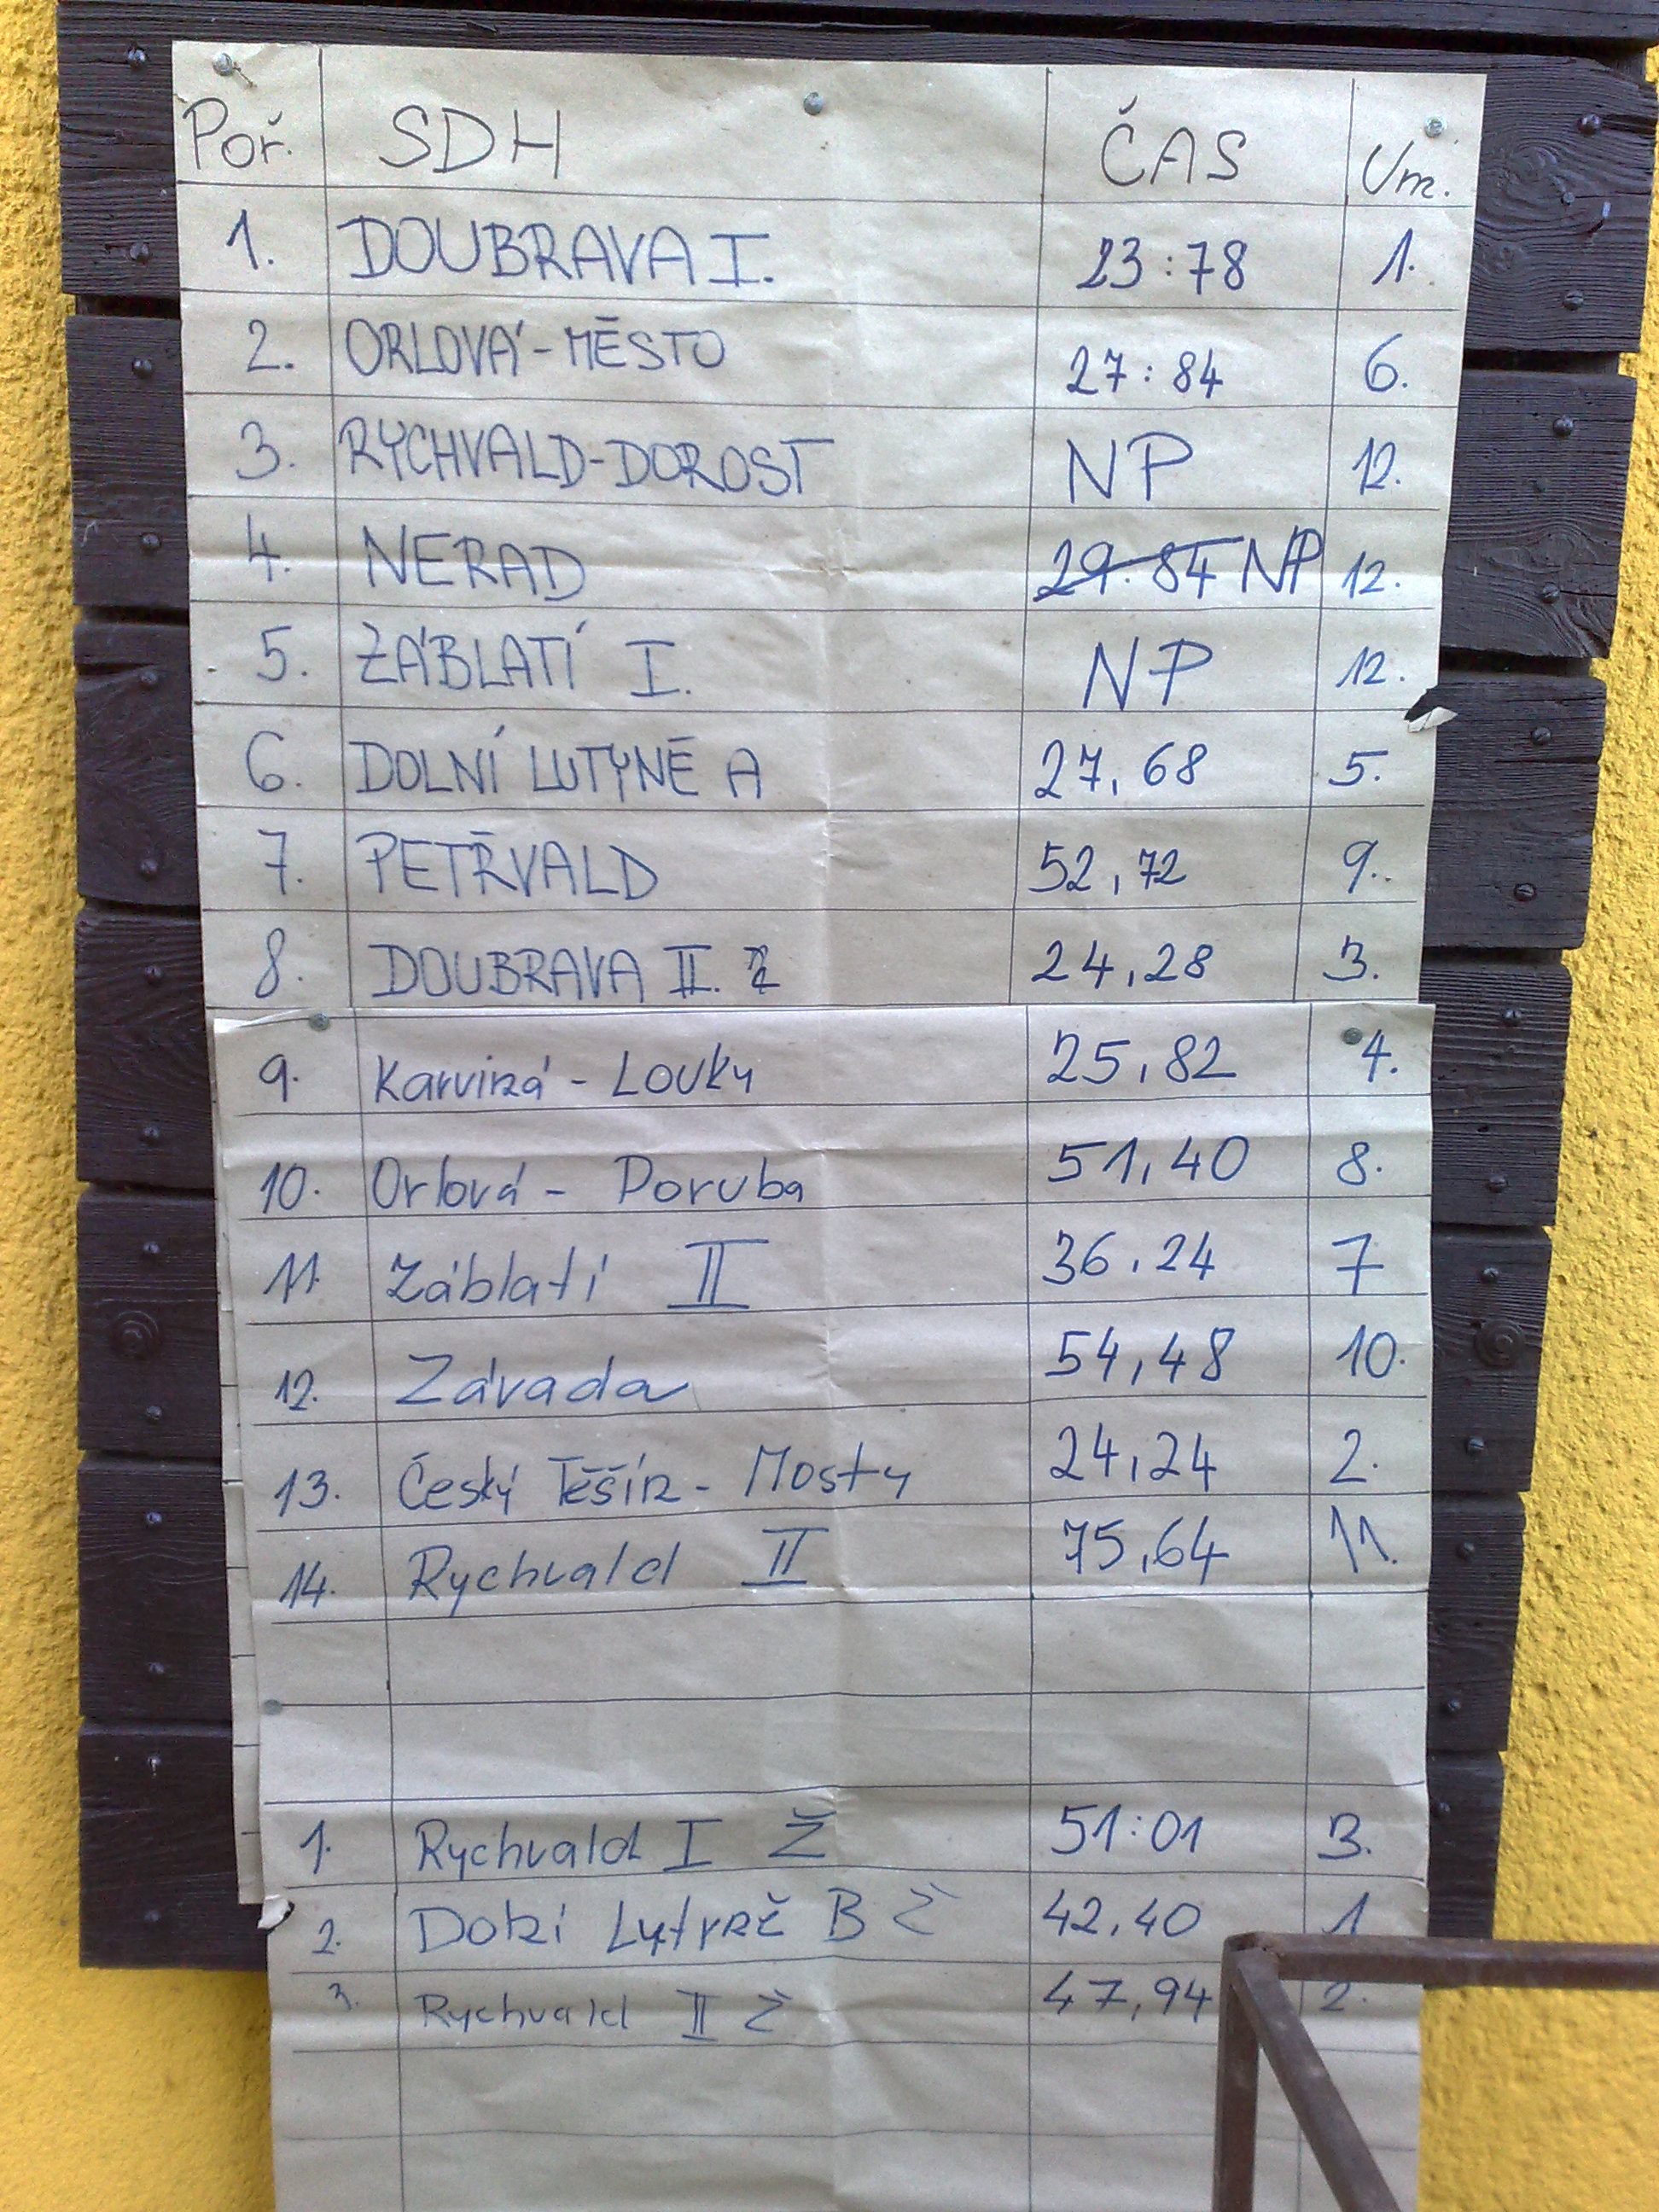 Poř. SDH ČAS Um.
1. DOUBRAVA I. 23:78 1.
2. ORLOVÁ-MĚSTO 27:84 6.
3. RYCHVALD-DOROST NP 12.
4. NERAD 29.84 NP 12.
5. ZÁBLATÍ I. NP 12.
6. DOLNÍ LUTYNĚ A 27,68 5.
7. PETŘVALD 52,72 9.
8. DOUBRAVA II. 24,28 3.
9. Karviná - Louky 25,82 4.
10. Orlová - Poruba 51,40 8.
11. Záblatí II 36,24 7
12. Závada 54,48 10.
13. Český Těšín - Mosty 24,24 2.
14. Rychvald II 75,64 11.
1. Rychvald I Ž 51:01 3.
2. B Ž 42,40 1
3. Rychvald II Ž 47,94 2.